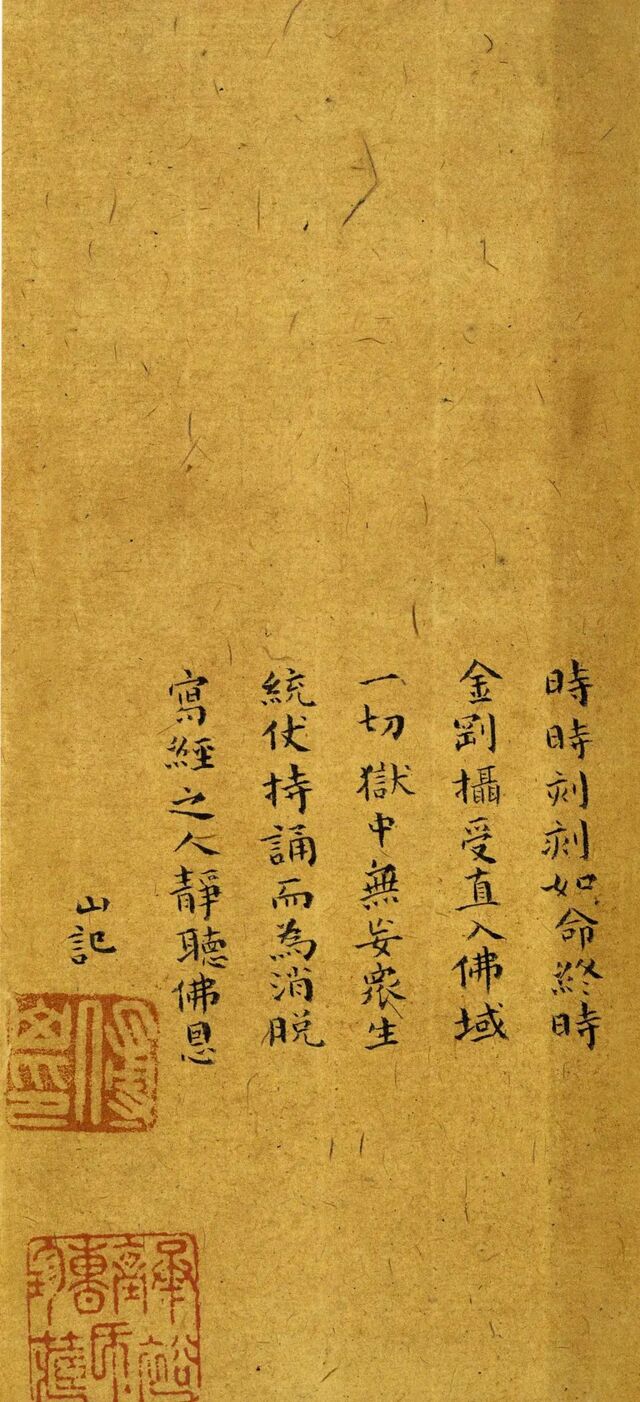 時時刻刻如命終時
金剛攝受直入佛域
一切獄中無妄眾生
統伏持誦而為消脱
寫經之人靜聽佛恩
山記